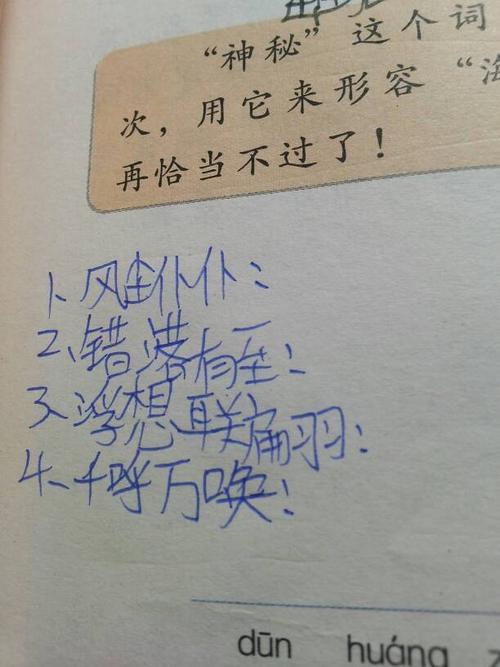 “神秘”这个词
次，用它来形容“
再恰当不过了！
1、风尘仆仆：
2、错落有至：
3、浮想联翩：
4、千呼万唤：
dūn huáng